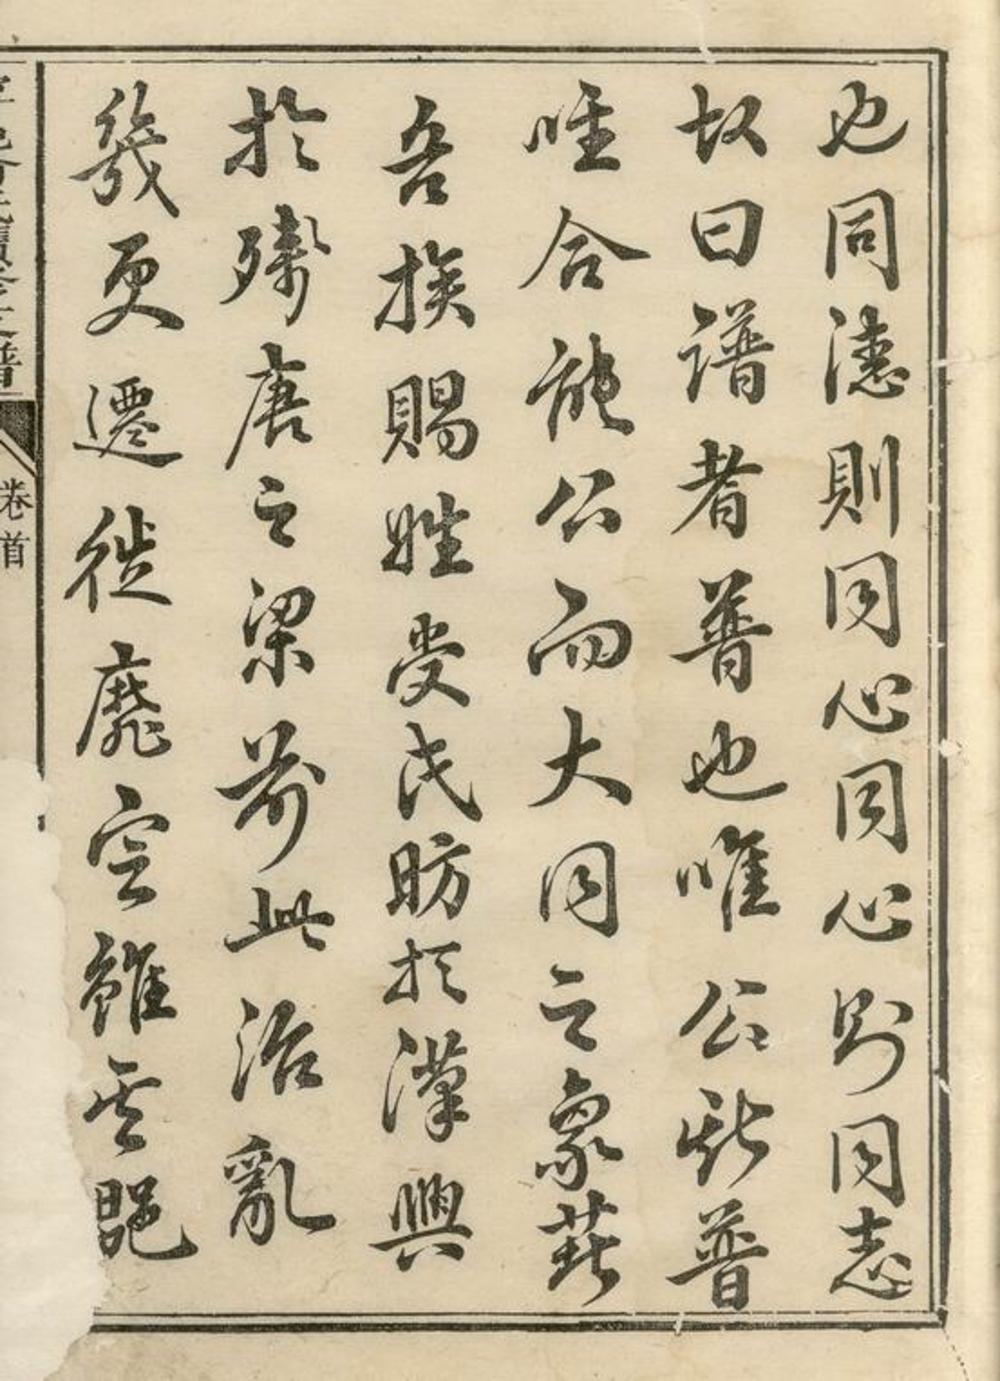 也同德則同心同心則同志
故曰譜者普也唯公斯普
唯合能公而大同之象兹
吾族賜姓受氏昉於漢興
於殘唐之梁前此治亂
幾更遷徙靡定雖云
卷首